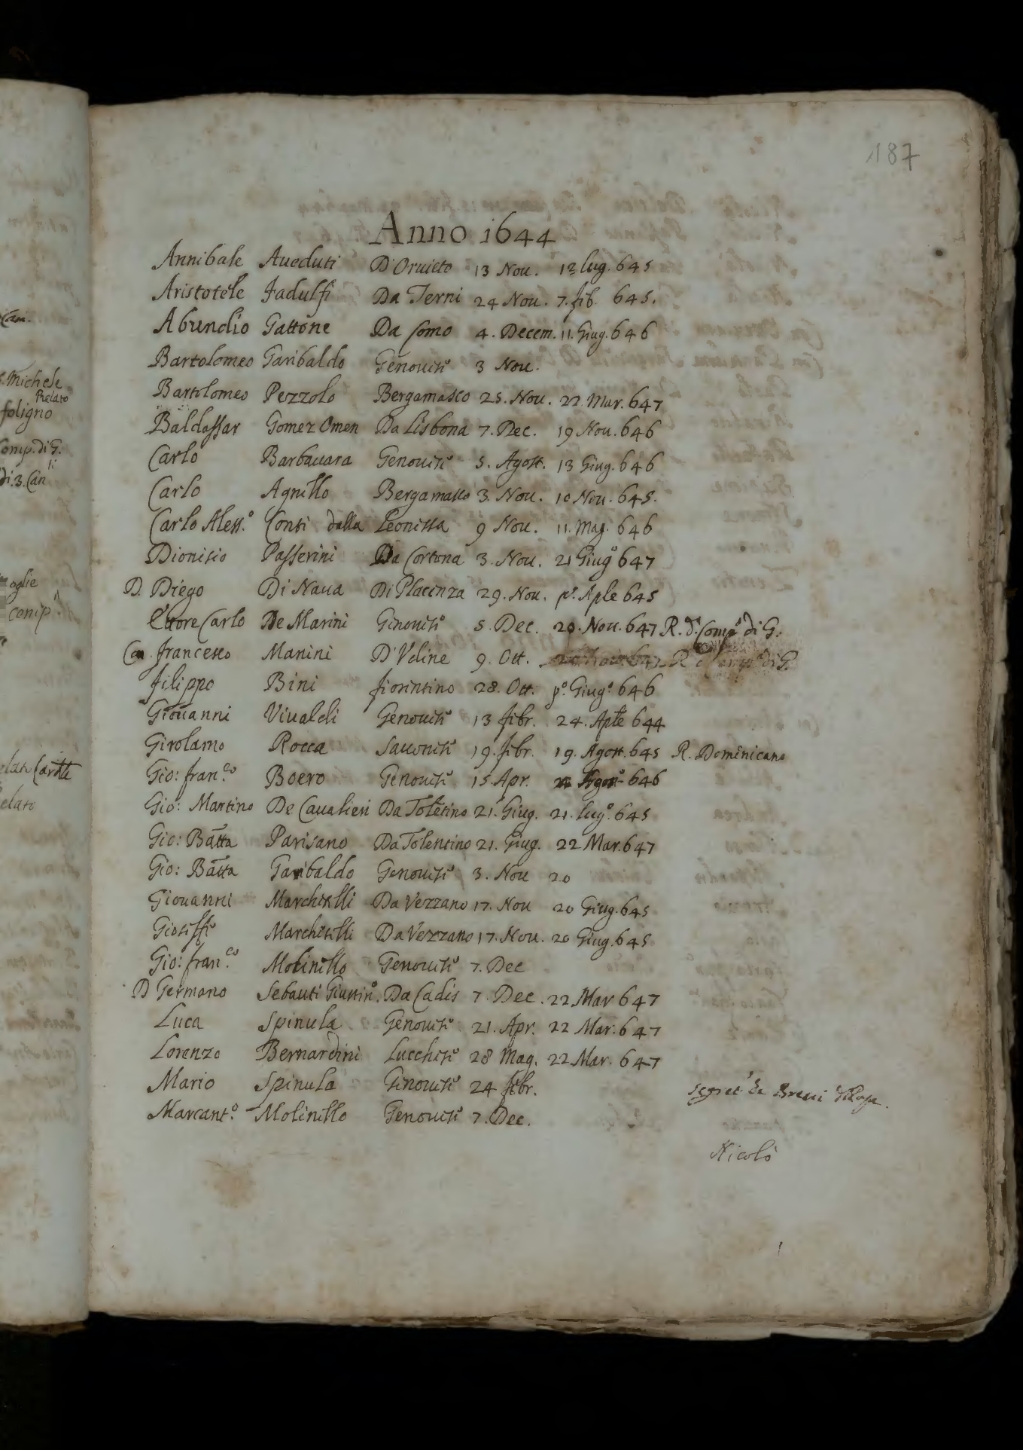 187
Anno 1644
Annibale Aueduti D'Oruieto 13 Nou. 18 lug. 645
Aristotele Fadulfi Da Terni 24 Nou. 7. feb. 645.
Abundio Gattone Da Como 4. Decem. 11. Giug. 646
Bartolomeo Garibaldo Genouese 3 Nou.
Bartolomeo Pezzolo Bergamasco 25. Nou. 22. Mar. 647
Baldassar Gomez Omen Da Lisbona 7. Dec. 19 Nou. 646
Carlo Barbauara Genouese 5. Agost. 13 Giug. 646
Carlo Agnello Bergamasco 3 Nou. 10 Nou. 645.
Carlo Aless.o Conti della Leonissa 9 Nou. 11. Mag. 646
Dionisio Passerini Da Cortona 3. Nou. 21 Giug.o 647
D. Diego Di Naua Di Placenza 29. Nou. p.o Aple 645
Ettore Carlo De Marini Genouese 5. Dec. 20. Nou. 647 R. d. Comp.a di G.
Can. francesco Manini D'Veline 9. Ott.
filippo Bini fiorentino 28. Ott. p.o Giug.o 646
Giouanni Viualdi Genouese 13 febr. 24. Aple 644
Girolamo Rocca Sauonese 19. febr. 19. Agost. 645 R. Dominicano
Gio: fran.co Boero Genouese 15 Apr. 646
Gio: Martino De Caualieri Da Tolentino 21. Giug. 21. lug.o 645
Gio: Batta Parisano Da Tolentino 21. Giug. 22 Mar. 647
Gio: Batta Garibaldo Genouese 3. Nou 20
Giouanni Marchetelli Da Vezzano 17. Nou 20 Giug. 645
Gioseffe Marchetelli Da Vezzano 17. Nou. 20 Giug. 645
Gio: fran.co Molinello Genouese 7. Dec
D Germano Da Cadis 7. Dec. 22 Mar 647
Luca Spinula Genouese 21. Apr. 22 Mar. 647
Lorenzo Bernardini Lucchese 28 Mag. 22 Mar. 647
Mario Spinula Genouese 24 febr. Segret.o de Breui
Marcant.o Molinello Genouese 7. Dec.
Nicolò